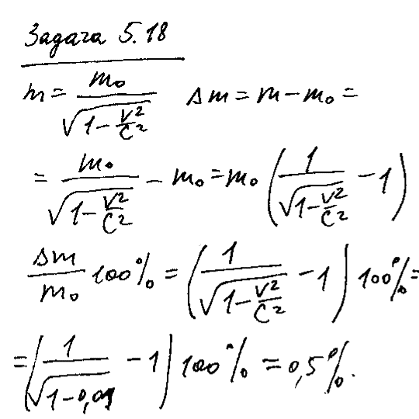 Задача 5.18
m = m₀ / √(1 - V²/C²)   Δm = m - m₀ =
= m₀ / √(1 - V²/C²) - m₀ = m₀ (1 / √(1 - V²/C²) - 1)
Δm / m₀ 100% = (1 / √(1 - V²/C²) - 1) 100% =
= (1 / √(1 - 0,01) - 1) 100% = 0,5%.